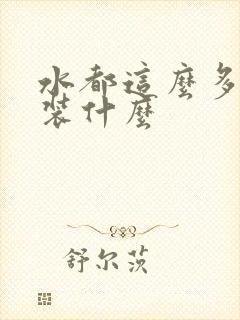 水都這麼多
装什麼
舒尔茨